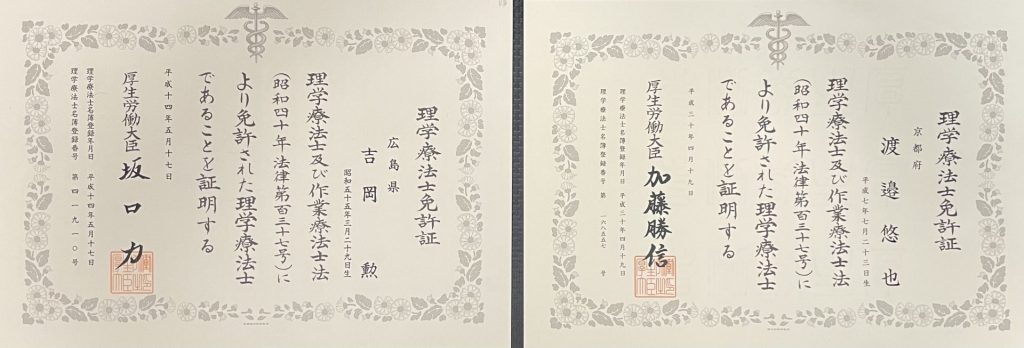 理学療法士免許証
広島県
吉岡勲
昭和五十五年三月二十九日生
理学療法士及び作業療法士法
(昭和四十年法律第百三十七号)に
より免許された理学療法士
であることを証明する
平成十四年五月十七日
厚生労働大臣 坂口力
理学療法士名簿登録年月日 平成十四年五月十七日
理学療法士名簿登録番号 第四一九一〇号
理学療法士免許証
京都府
渡邉悠也
平成七年七月二十三日生
理学療法士及び作業療法士法
(昭和四十年法律第百三十七号)に
より免許された理学療法士
であることを証明する
平成三十年四月十九日
厚生労働大臣 加藤勝信
理学療法士名簿登録年月日 平成三十年四月十九日
理学療法士名簿登録番号 第 一六八五五七 号